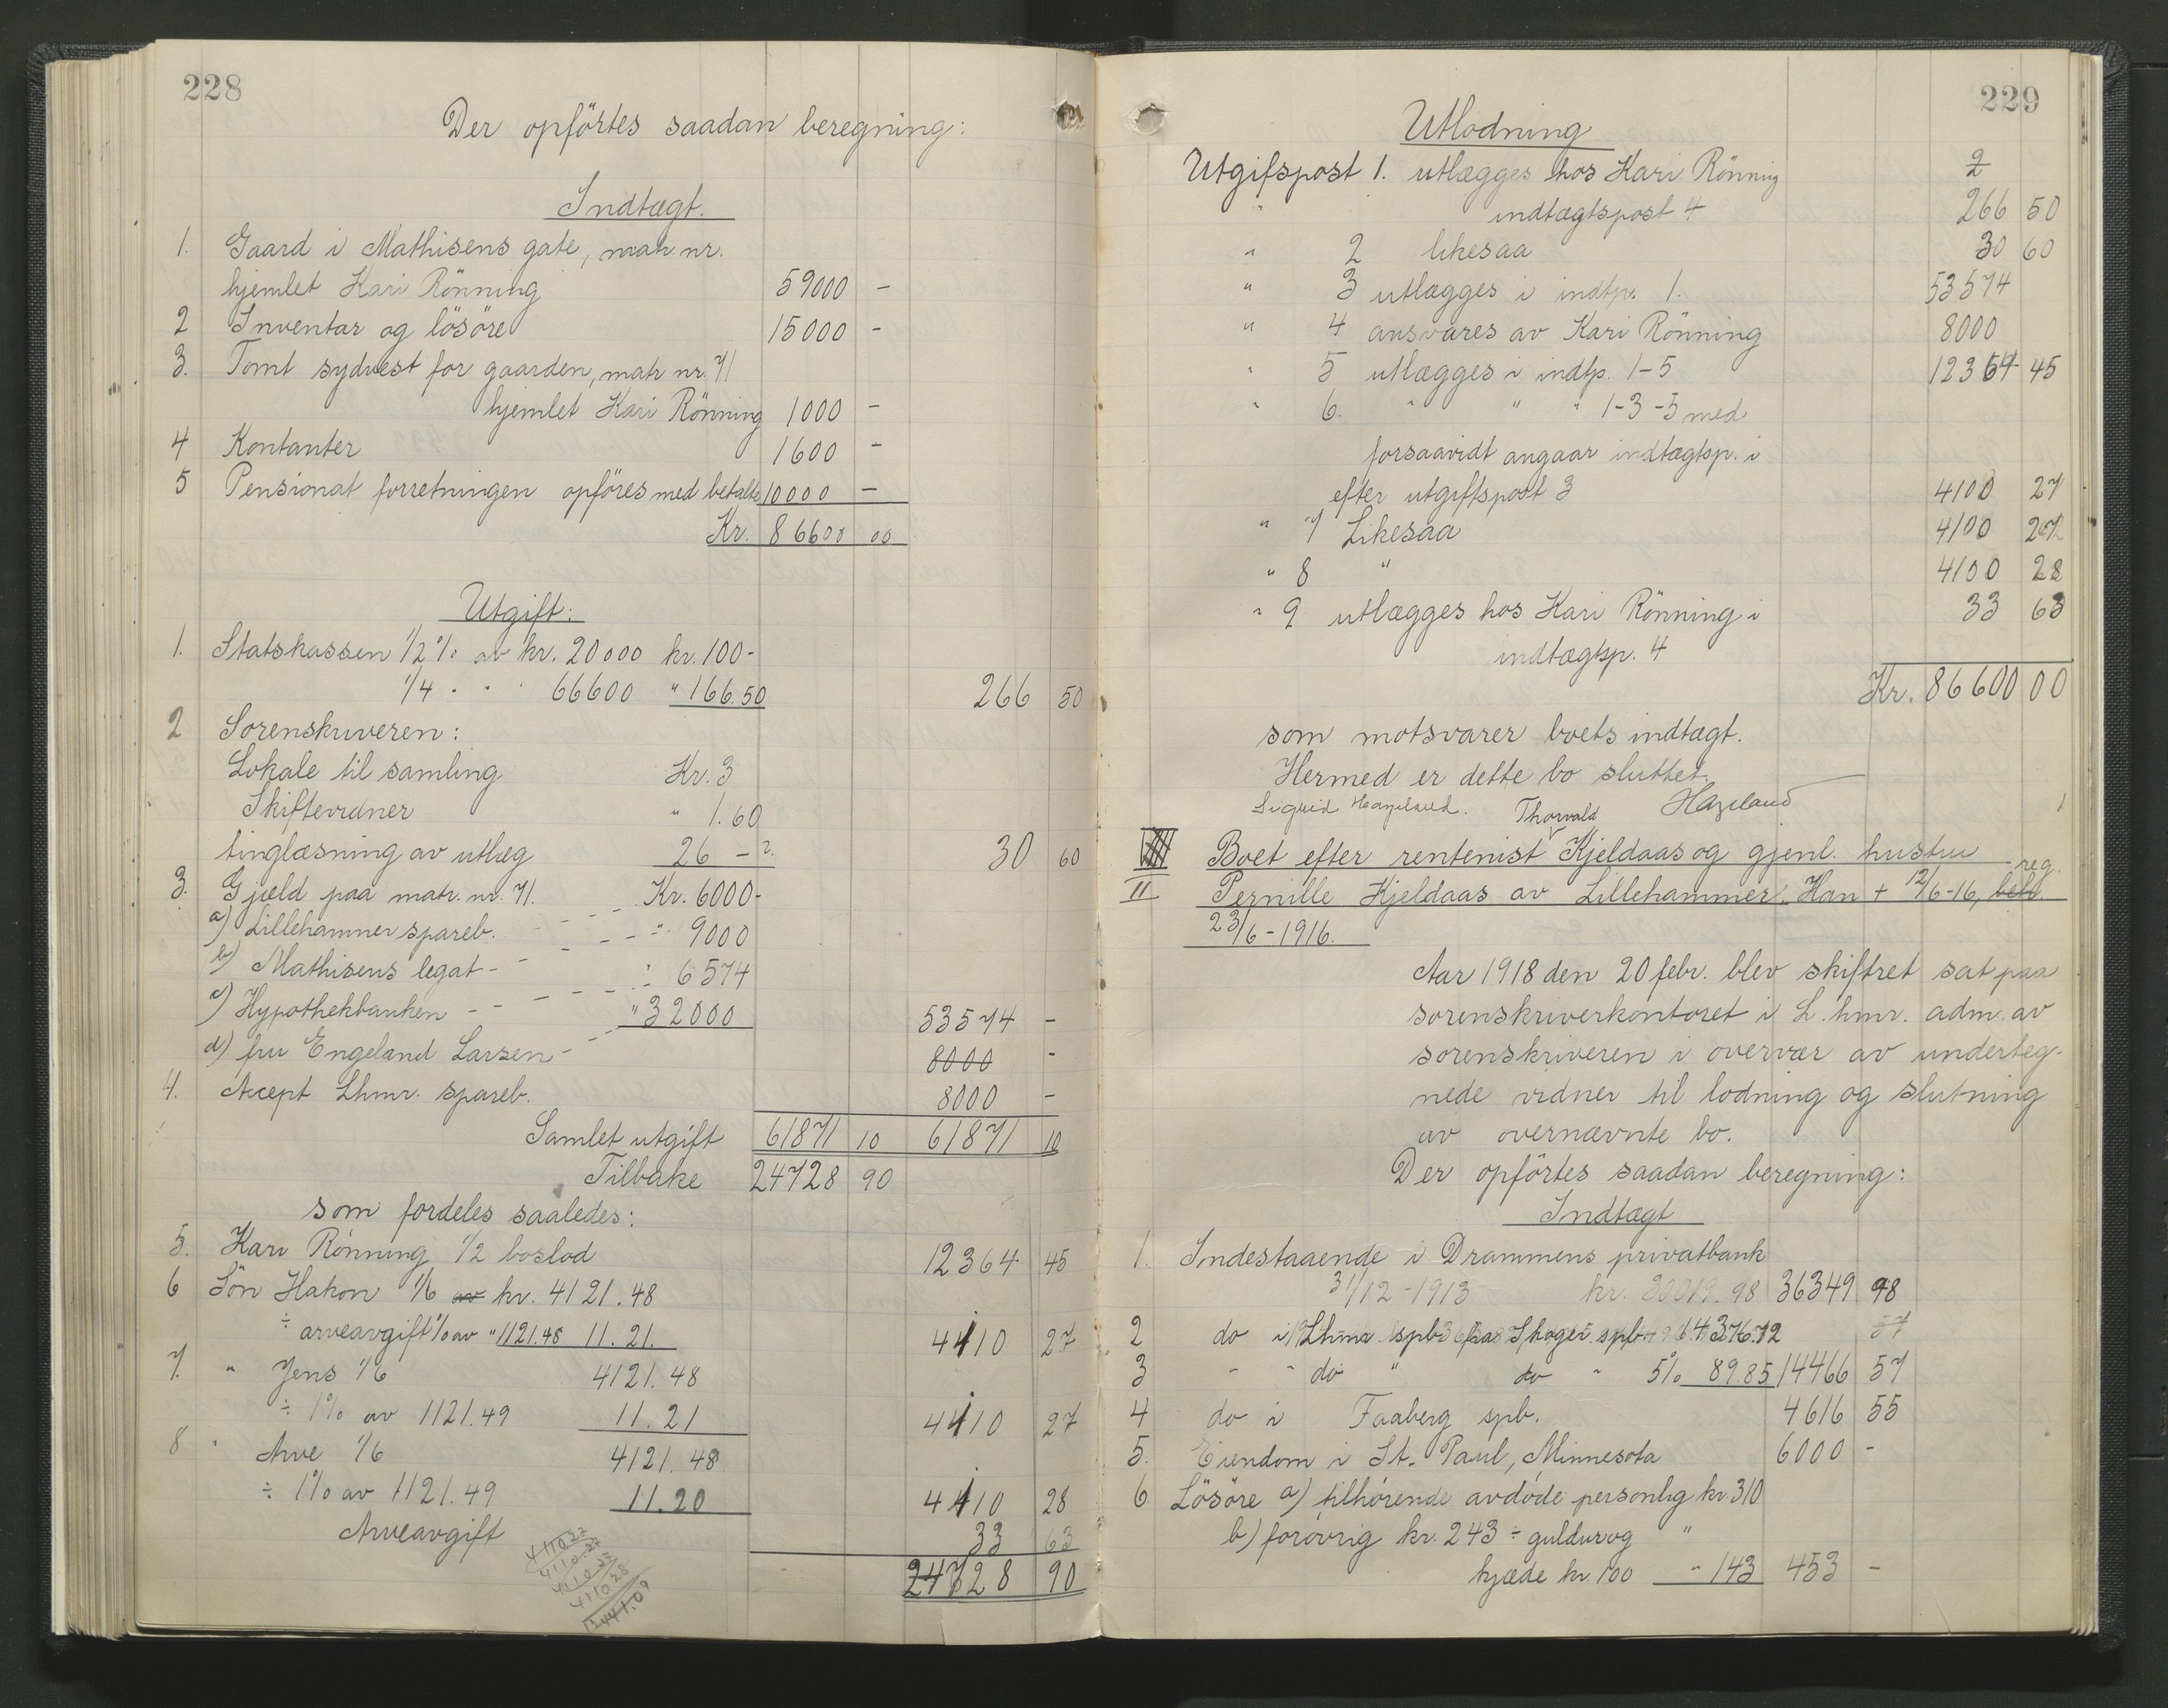 228
Der opförtes saadan beregning:
Indtægt.
1. Gaard i Mathisens gate, matr. nr.
hjemlet Kari Rönning 59000 -
2 Inventar og lösöre 15000 -
3. Tomt sydvest for gaarden, matr nr. 71
hjemlet Kari Rönning 1000 -
4 Kontanter 1600 -
5 Pensionat forretningen opföres med betalte 10000 -
Kr. 86600 00
Utgift:
1. Statskassen 1/2 % av kr. 20000 kr. 100-
1/4 " " " 66600 " 166.50 266 50
2 Sorenskriveren:
Lokale til samling Kr. 3
Skiftevidner " 1.60
tinglæsning av utlæg 26 - 30 60
3. Gjæld paa matr. nr. 71. Kr. 6000-
a) Lillehammer spareb. - - - " 9000
b) Mathisens legat - - - - " 6574
c) Hypothekbanken - - - - - " 32000 53574 -
d) fru Engeland Larsen - - - 8000 -
4. Accept Lhmr. spareb. 8000 -
Samlet utgift 61871 10 61871 10
Tilbake 24728 90
som fordeles saaledes:
5. Kari Rönning 1/2 boslod 12364 45
6 Sön Hakon 1/6 av kr. 4121.48
÷ arveavgift % av " 1121.48 11.21. 4110 27
7. " Jens 1/6 4121.48
÷ 1% av 1121.49 11.21 4110 27
8 " Arve 1/6 4121.48
÷ 1% av 1121.49 11.20 4110 28
Arveavgift 33 63
24728 90
4110.27
4110.27
4110.27
4110.28
229
Utlodning
Utgifspost 1. utlægges hos Kari Rönning 2
" indtægtspost 4 266 50
" 2 likesaa 30 60
" 3 utlægges i indtp. 1. 53574
" 4 ansvares av Kari Rönning 8000
" 5 utlægges i indtp. 1-5 12364 45
" 6. " " " 1-3-5 med
forsaavidt angaar indtægtsp. i
efter utgiftspost 3 4100 27
" 7 Likesaa 4100 27
" 8 " 4100 28
" 9 utlægges hos Kari Rönning i 33 63
indtægtsp. 4
Kr. 86600 00
som motsvarer boets indtægt.
Hermed er dette bo sluttet.
Sigrid Hazeland. Hazeland
Thorvald
Boet efter rentenist Kjeldaas og gjenl. hustru reg.
II Pernille Kjeldaas av Lillehammer. Han + 12/6-16, beh.
23/6-1916.
Aar 1918 den 20 febr. blev skiftret sat paa
sorenskriverkontoret i L.hmr. adm. av
sorenskriveren i overvær av underteg-
nede vidner til lodning og slutning
av overnævnte bo.
Der opförtes saadan beregning:
Indtægt
1. Indestaaende i Drammens privatbank
31/12-1913 kr. 36349 98
2 do i Lhmr spb fra Skoger spb 14376.72 57
3 " " do " do " 5% 89.85 14466 57
4 do i Faaberg spb. 4616 55
5. Eiendom i St. Paul, Minnesota 6000 -
6. Lösöre a) tilhörende avdöde personlig kr. 310
b) forövrig kr. 243 ÷ guldur og "
kjæde kr. 100 " 143 453 -